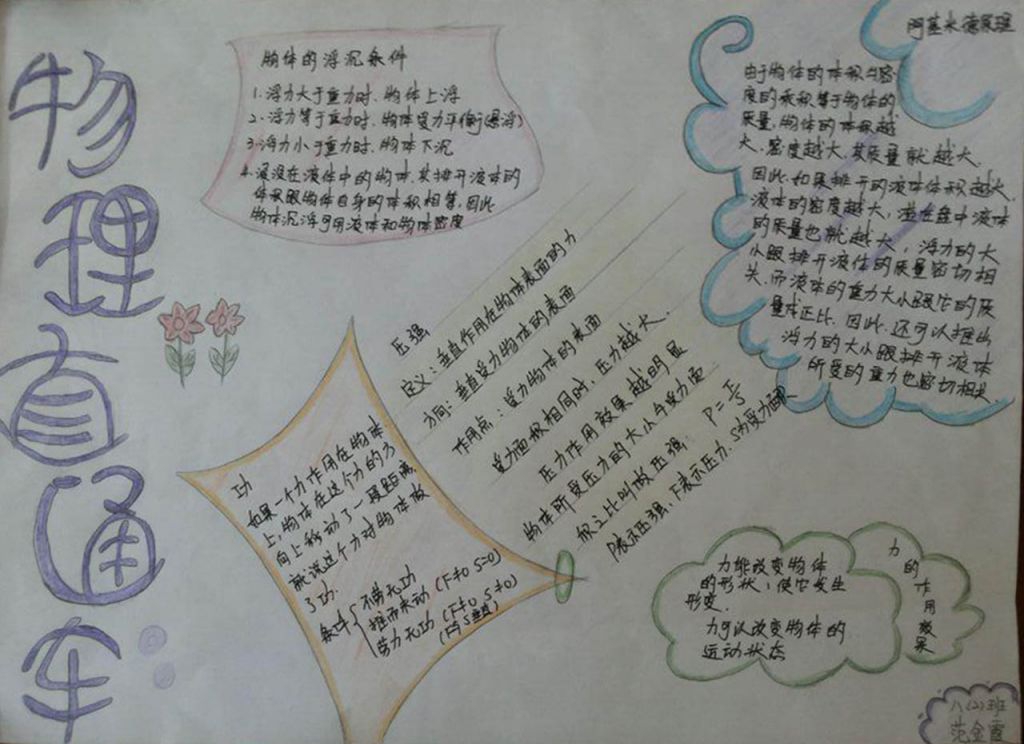 物理直通车
物体的浮沉条件
1.浮力大于重力时.物体上浮
2.浮力等于重力时.物体受力平衡(悬浮)
3.浮力小于重力时.物体下沉
4.浸没在液体中的物体.其排开液体的
体积跟物体自身的体积相等.因此
物体沉浮可用液体和物体密度
阿基米德原理
由于物体的体积与密
度的乘积等于物体的
质量.物体的体积越
大.密度越大.其质量就越大.
因此.如果排开的液体体积越大.
液体的密度越大,溢在盘中液体
的质量也就越大,浮力的大
小跟排开液体的质量密切相
关.而液体的重力大小跟它的质
量成正比.因此.还可以推出
浮力的大小跟排开液体
所受的重力也密切相关.
压强
定义:垂直作用在物体表面的力
方向:垂直受力物体的表面
作用点:受力物体的表面
受力面积相同时,压力越大.
压力作用效果越明显
物体所受压力的大小与受力面
积之比叫做压强: P=F/S
P表示压强,F表示压力.S为受力面
功
如果一个力作用在物体
上,物体在这个力的方
向上移动了一段距离,
就说这个力对物体做
了功.
条件
不劳无功 (F=0 S=0)
推而未动 (F≠0 S=0)
劳力无功 (F≠0 S≠0)
(F与S垂直)
力的作用效果
力能改变物体
的形状,使它发生
形变.
力可以改变物体的
运动状态
八(2)班
范金霞